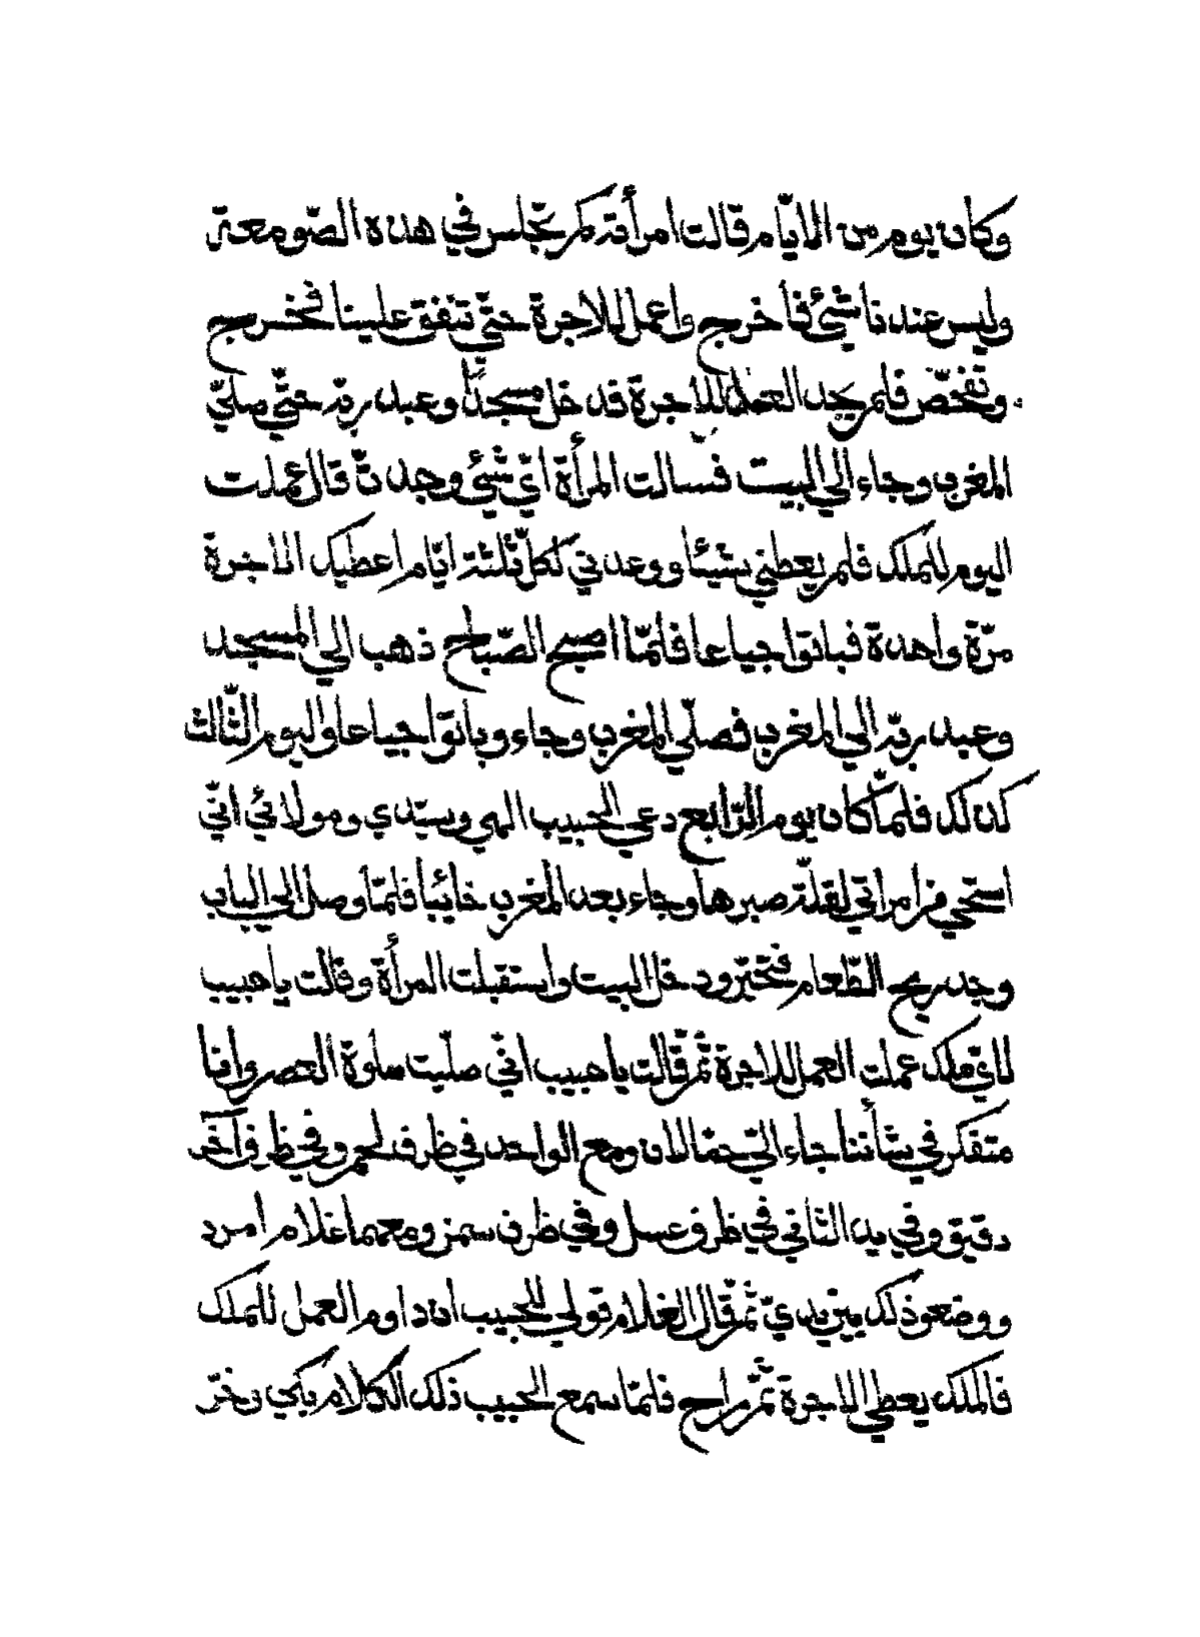 وكان يوم من الايّام قالت امرأته كم تجلس في هذه الصّومعة
وليس عندنا شيئ فأخرج واعمل للاجرة حتّي تنفق علينا فخسرج
وتفحّص فلم يجد العمل للاجرة فدخل مسجدًا وعبد ربّه حتّي صلّي
المغرب وجاء الي البيت فسالت المرأة ايّ شيئ وجدتّ قال عملت
اليوم للملك فلم يعطني شيئا ووعدني لكلّ ثلثة ايّام اعطيك الاجرة
مرّة واحدة فباتوا جياعا فلمّا اصبح الصّباح ذهب الي المسجد
وعبد ربّه الي المغرب فصلّي المغرب وجاء وباتوا جياعا واليوم الثّالث
كذلك فلمّا كان يوم الرّابع دعي الحبيب الهي وسيّدي ومولائي انّي
استحي من امراتي لقلّة صبرها وجاء بعد المغرب خائبا فلمّا وصل الي الباب
وجد ريح الطّعام فتحيّر ودخل البيت واستقبلت المرأة وقالت يا حبيب
لايّ ملك عملت العمل للاجرة ثمّ قالت يا حبيب انّي صلّيت صلوة العصر وانا
متفكر في شأننا جاء اليّ حمّالان ومع الواحد في ظرف لحم وفي ظرف آخر
دقيق وفي يد الثاني في ظرف عسل وفي ظرف سمن ومعهما غلام امرد
ووضعو ذلك بين يديّ ثمّ قال الغلام قولي للحبيب ان داوم العمل للملك
فالملك يعطي الاجرة ثمّ راح فلمّا سمع الحبيب ذلك الكلام بكي وخرّ